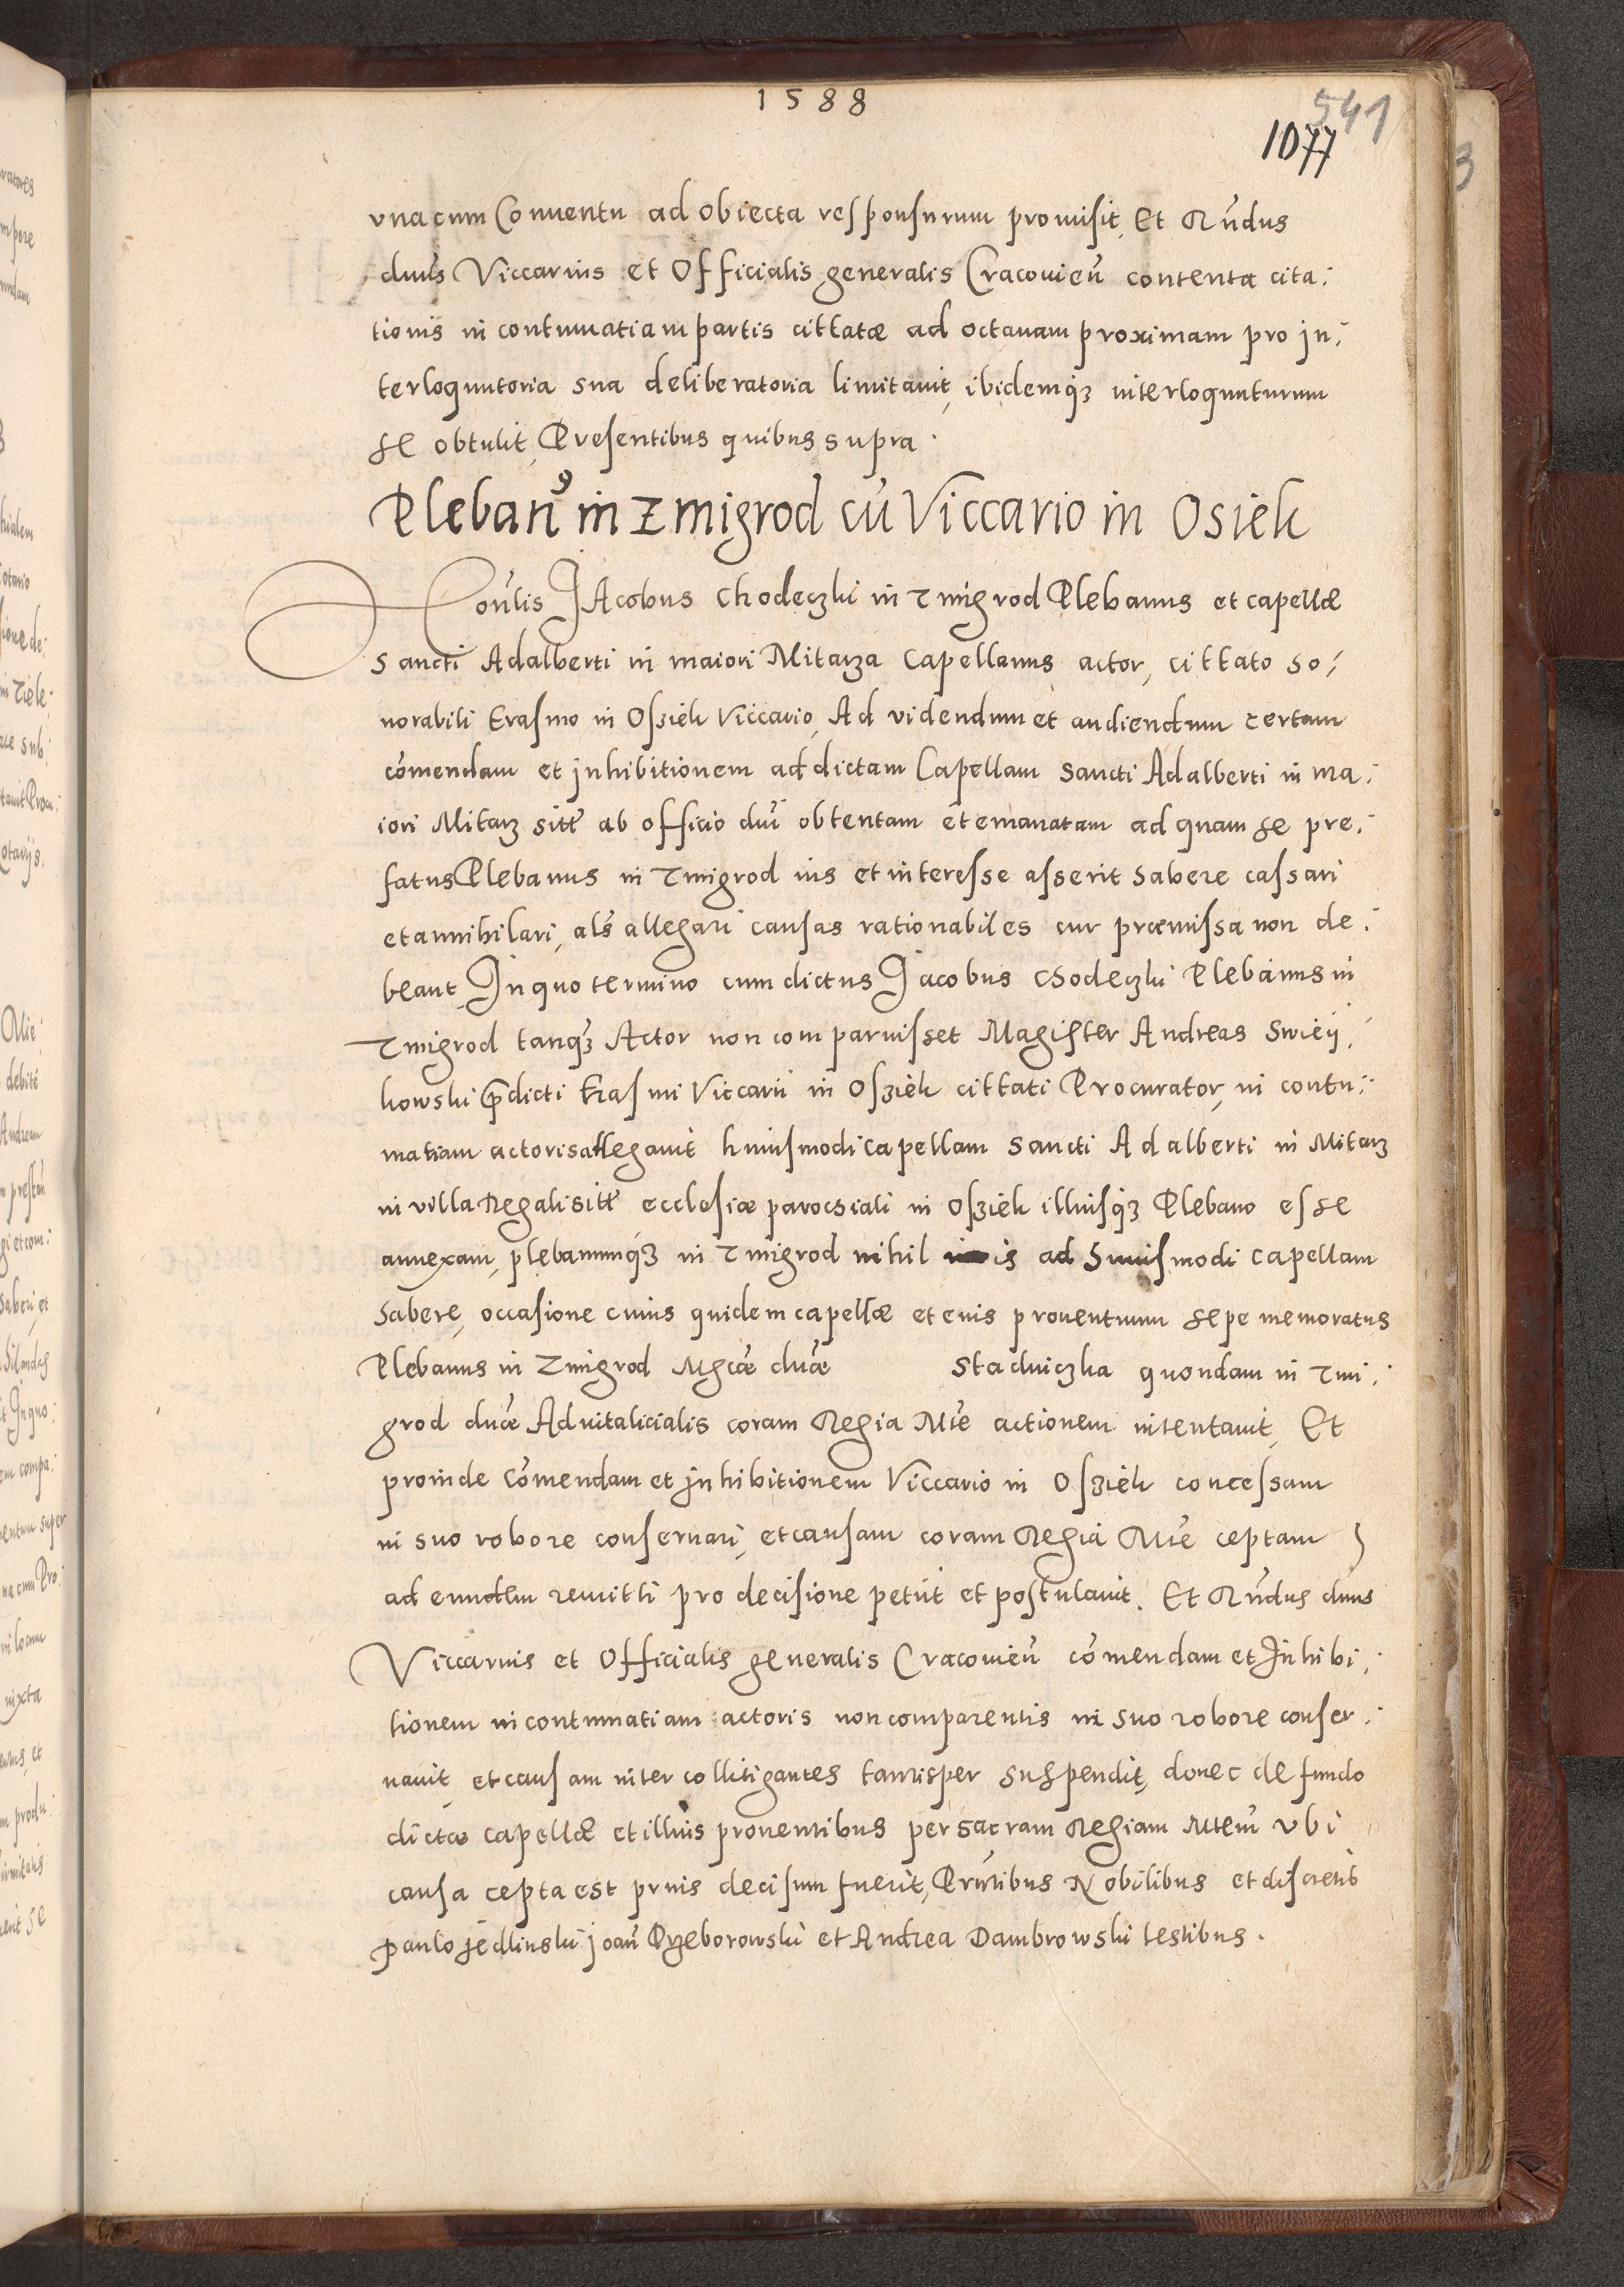 1588
541
1077
vna cum Conuentu ad obiecta responsurum promisit, Et Rñdus
dnus Viccarius et Officialis generalis Cracouień contenta cita:
tionis in contumatiam partis cittatæ ad octauam proximam pro in:
terloquutoria sua deliberatoria limitauit, ibidemqꝫ interloquuturum
se obtulit, Presentibus quibus supra.
Plebanꝰ in Zmigrod cũ Viccario in Osiek
Honlis Jacobus Chodeczki in Zmigrod Plebanus et capellæ
Sancti Adalberti in maiori Mitarza Capellanus actor, cittato ho:
norabili Erasmo in Osziek Viccario, Ad videndum et audiendum certam
cõmendam et inhibitionem ad dictam Capellam Sancti Adalberti in ma:
iori Mitarz sitt̃ ab officio dni obtentam et emanatam ad quam se pre:
fatus Plebanus in Zmigrod ius et interesse asserit habere cassari
et annihilari, als̃ allegari causas rationabiles cur præmissa non de:
beant, In quo termino cum dictus Jacobus Chodeczki Plebanus in
Zmigrod tanqꝫ Actor non comparuisset Magister Andreas Swiey:
kowski p̃dicti Erasmi Viccarii in Osziek cittati Procurator, in contu:
matiam actoris allegauit huiusmodi capellam Sancti Adalberti in Mitarz
in villa Regali sitt̃ ecclesiæ parochiali in Osziek illiusqꝫ Plebano esse
annexam, plebanumqꝫ in Zmigrod nihil iuris ad huiusmodi capellam
habere, occasione cuius quidem capellæ et eius prouentuum sepe memoratus
Plebanus in Zmigrod Mgcæ dnæ Stadniczka quondam in Zmi:
grod dnæ Aduitalicialis coram Regia Mte actionem intentauit, Et
proinde cõmendam et inhibitionem Viccario in Osziek concessam
in suo robore conseruari, et causam coram Regia Mte ceptam
ad eundem remitti pro decisione petiit et postulauit. Et Rñdus dnus
Viccarius et Officialis generalis Cracouień cõmendam et Inhibi:
tionem in contumatiam actoris non comparentis in suo robore conser:
uauit, et causam inter collitigantes tantisper suspendit, donec de fundo
dictæ capellæ et illius prouentibus per sacram Regiam Mtem vbi
causa cepta est prius decisum fuerit, Prñtibus Nobilibus et discretis
Paulo Jedlinski Joań Przeborowski et Andrea Dambrowski testibus.